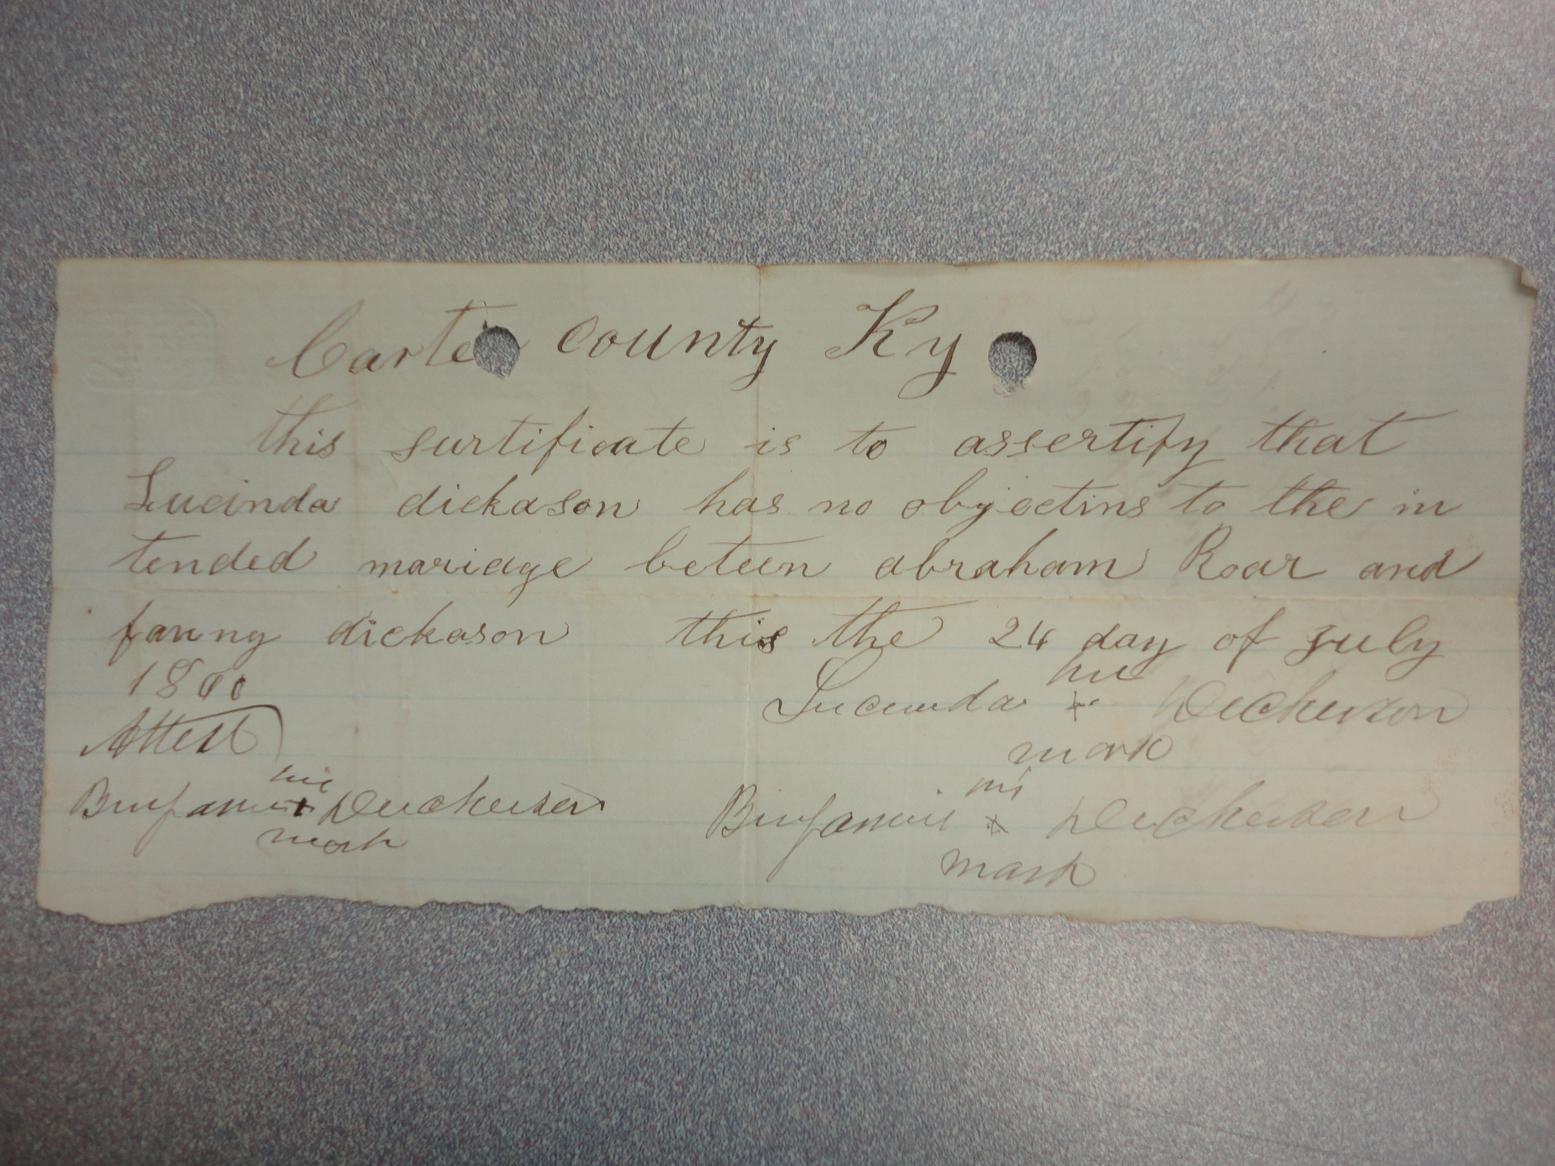 Carte county Ky
this surtificate is to assertify that
Lucinda dickason has no objectins to the in
tended mariage beteen abraham Roar and
fanny dickason this the 24 day of july
Attest
Lucinda + Dickerson
mark
his
Binjamin + Deickerson
mark
his
Binjamin x Deickerson
mark